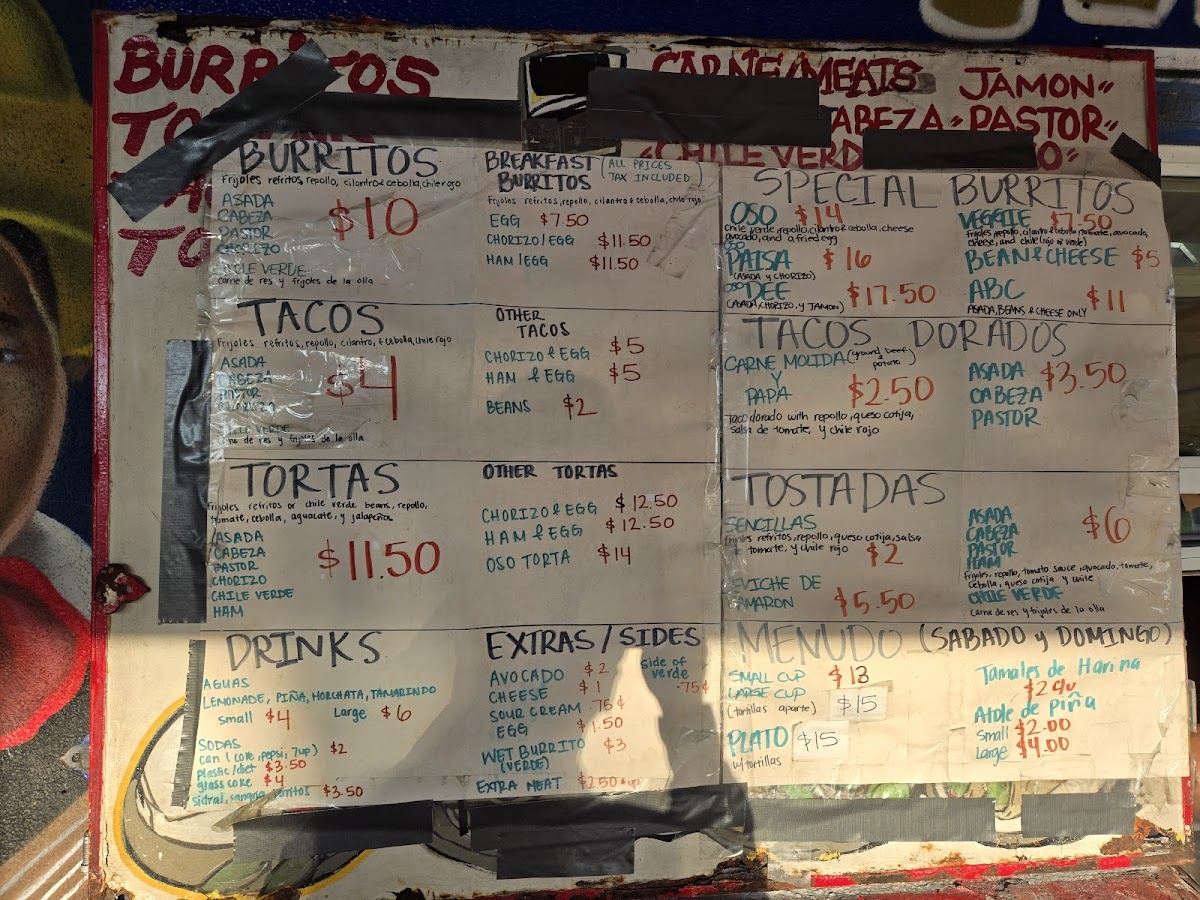 BURRITOS
CARNE/MEATS JAMON"
CABEZA " PASTOR"
"CHILE VERDE
BURRITOS
Frijoles refritos, repollo, cilantro & cebolla, chile rojo
ASADA
CABEZA
PASTOR
CHORIZO
$10
CHILE VERDE
carne de res y frijoles de la olla
BREAKFAST BURRITOS
(ALL PRICES TAX INCLUDED)
Frijoles refritos, repollo, cilantro & cebolla, chile rojo
EGG $7.50
CHORIZO/EGG $11.50
HAM/EGG $11.50
TACOS
Frijoles refritos, repollo, cilantro, & cebolla, chile rojo
ASADA
CABEZA
PASTOR
CHORIZO
$4
CHILE VERDE
carne de res y frijoles de la olla
OTHER TACOS
CHORIZO & EGG $5
HAM & EGG $5
BEANS $2
TORTAS
Frijoles refritos or chile verde beans, repollo,
tomate, cebolla, aguacate, y jalapeños
ASADA
CABEZA
PASTOR
CHORIZO
CHILE VERDE
HAM
$11.50
OTHER TORTAS
CHORIZO & EGG $12.50
HAM & EGG $12.50
OSO TORTA $14
DRINKS
AGUAS
LEMONADE, PIÑA, HORCHATA, TAMARINDO
small $4 Large $6
SODAS
can (coke, pepsi, 7up) $2
plastic/diet $3.50
glass coke $4
sidral, sangria, jarritos $3.50
EXTRAS/SIDES
AVOCADO $2
CHEESE $1
SOUR CREAM .75¢
EGG $1.50
WET BURRITO (VERDE) $3
EXTRA MEAT $2.50 & up
side of verde .75¢
SPECIAL BURRITOS
OSO $14
Chile verde, repollo, cilantro & cebolla, cheese
avocado, and a fried egg
OSO PAISA $16
(ASADA y CHORIZO)
OSO DEE $17.50
(ASADA, CHORIZO, y JAMON)
VEGGIE $7.50
Frijoles, repollo, cilantro & cebolla, tomate, avocado,
cheese, and chile (rojo or verde)
BEAN & CHEESE $5
ABC $11
ASADA, BEANS & CHEESE ONLY
TACOS DORADOS
CARNE MOLIDA (ground beef & potato)
Y
PAPA $2.50
Taco dorado with repollo, queso cotija,
salsa de tomate, y chile rojo
ASADA
CABEZA
PASTOR
$3.50
TOSTADAS
SENCILLAS
Frijoles refritos, repollo, queso cotija, salsa
de tomate, y chile rojo $2
CEVICHE DE
CAMARON $5.50
ASADA
CABEZA
PASTOR
HAM
$6
Frijoles, repollo, tomato sauce, avocado, tomate,
cebolla, queso cotija y chile
CHILE VERDE
Carne de res y frijoles de la olla
MENUDO (SABADO y DOMINGO)
SMALL CUP $13
LARGE CUP $15
(tortillas aparte)
PLATO $15
w/tortillas
Tamales de Harina
$2 c/u
Atole de piña
Small $2.00
Large $4.00